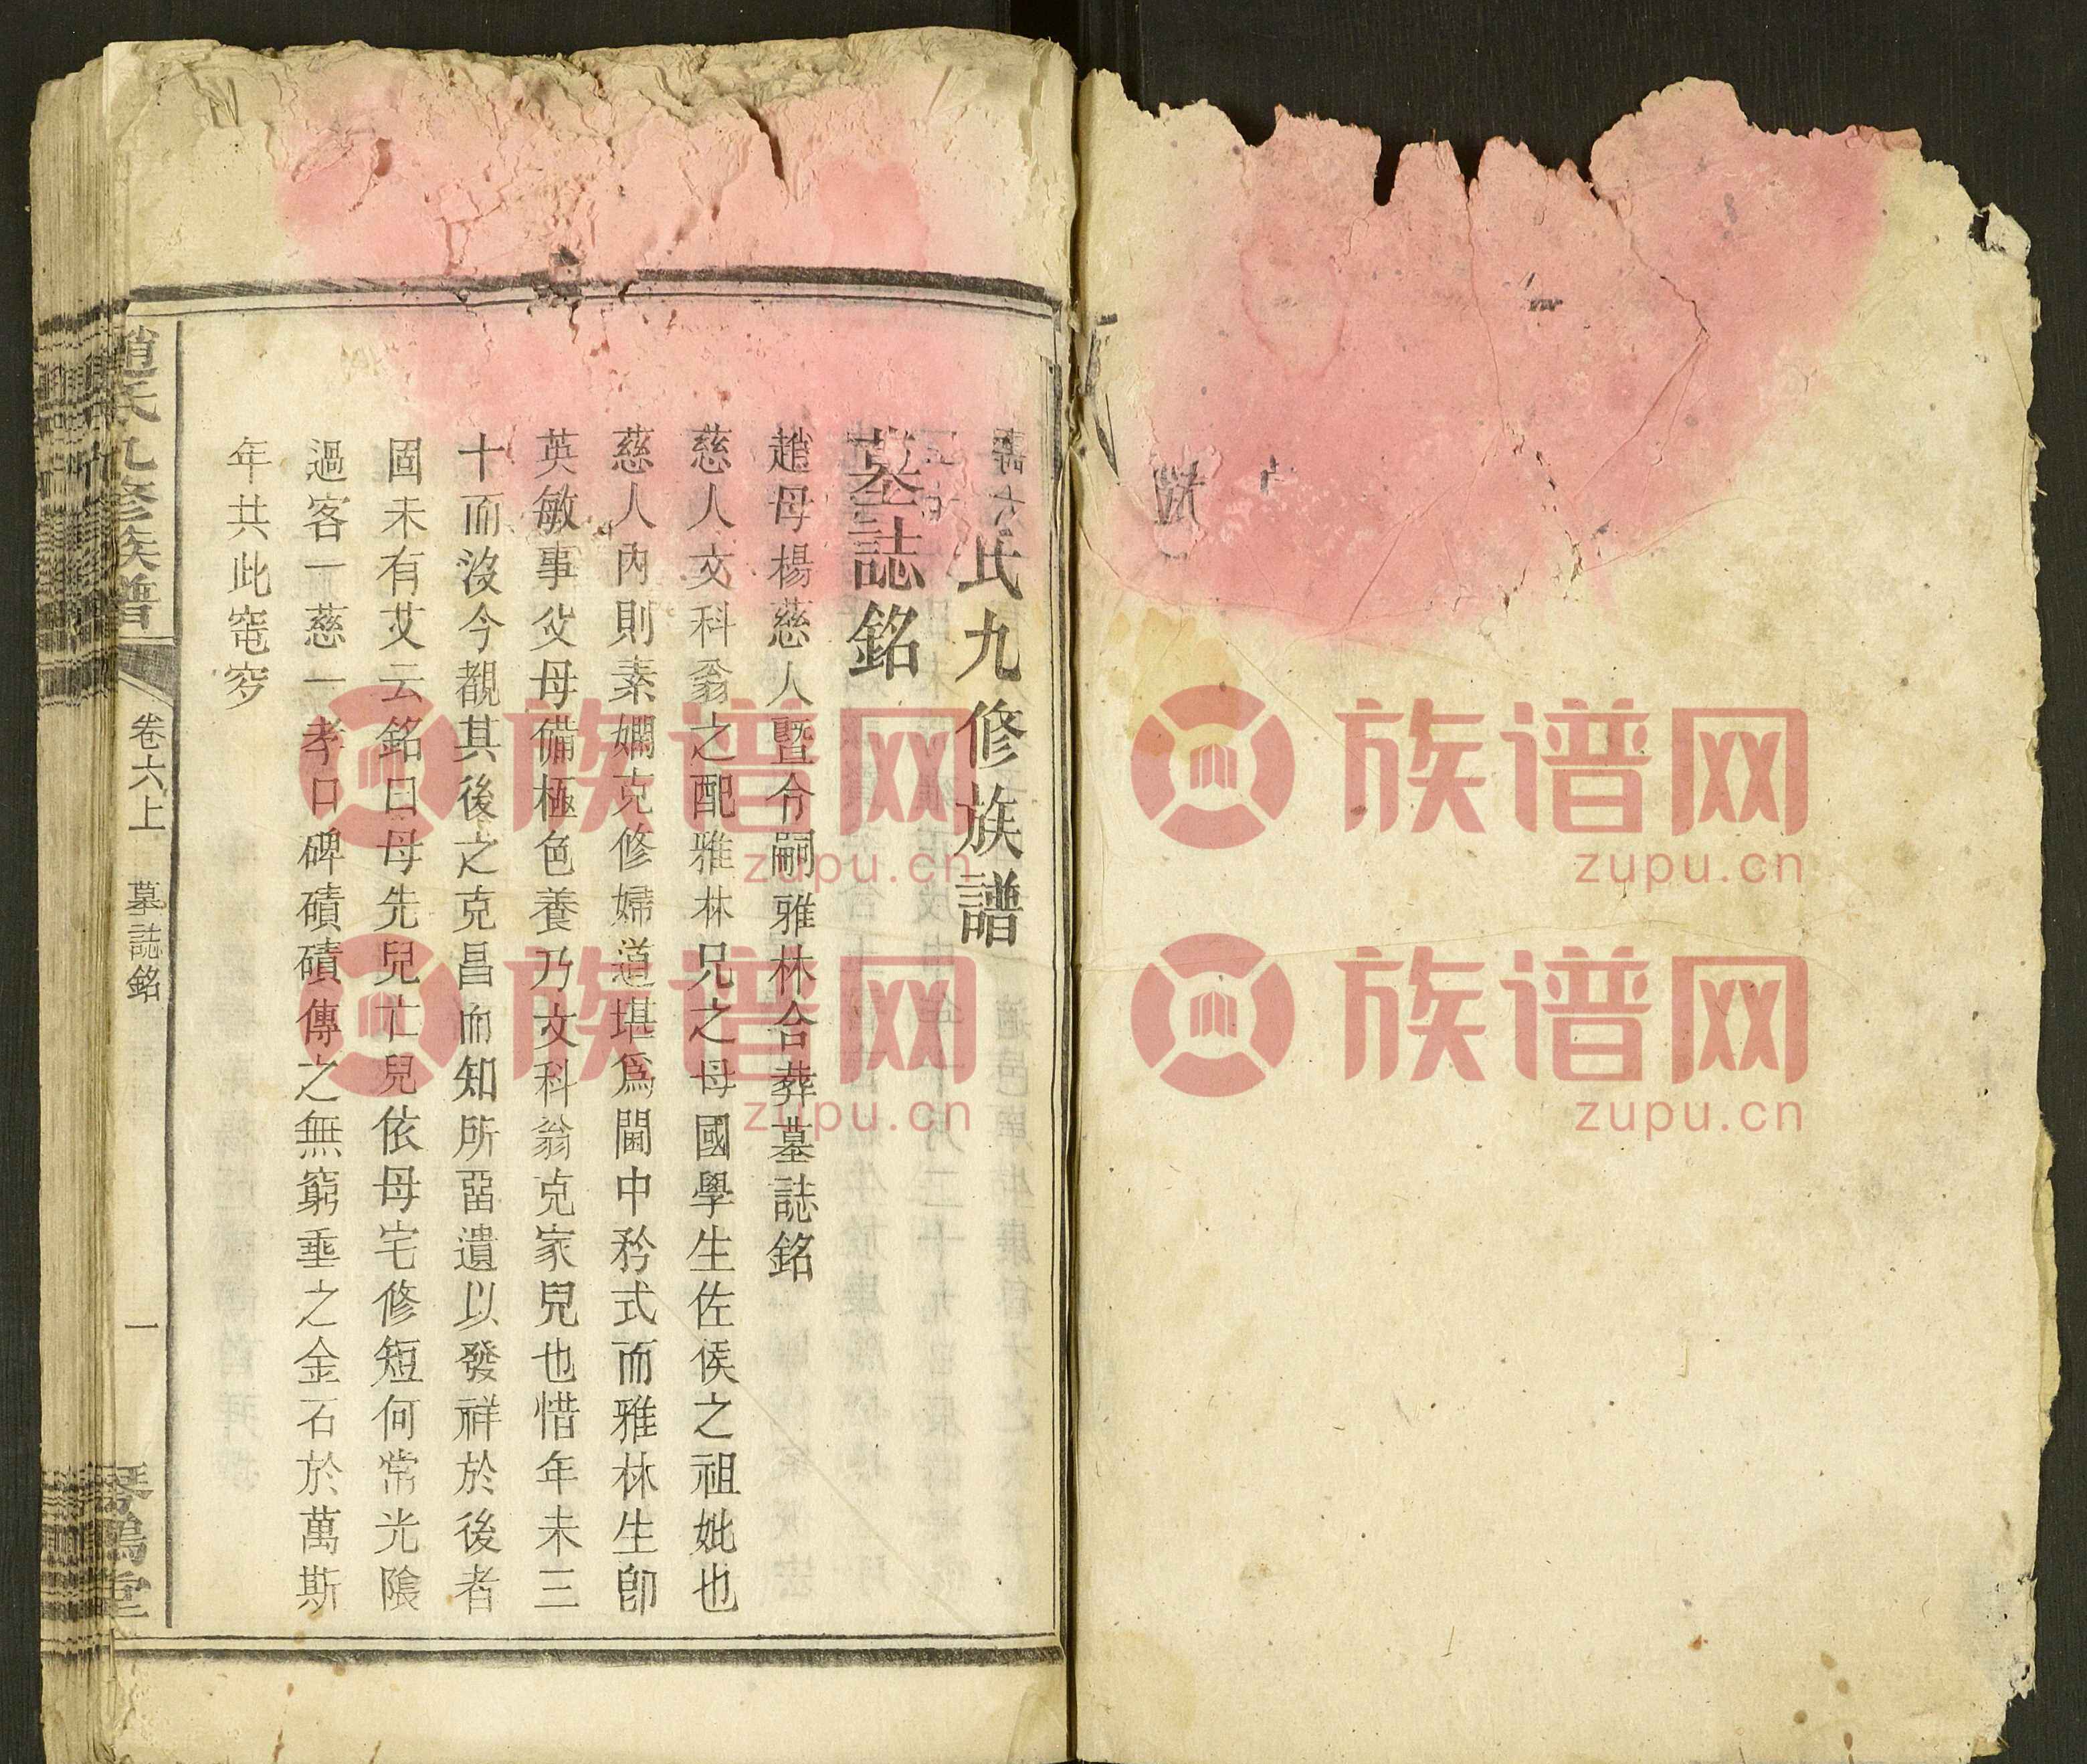 氏九修族譜
墓誌銘
趙母楊慈人暨令嗣雅林合葬墓誌銘
慈人文科翁之配雅林兄之母國學生佐侯之祖妣也
慈人內則素嫻克修婦道堪爲閫中矜式而雅林生卽
英敏事父母備極色養乃文科翁克家兒也惜年未三
十而沒今覩其後之克昌而知所畱遺以發祥於後者
固未有艾云銘曰母先兒亡兒依母宅修短何常光陰
過客一慈一孝口碑磧磧傳之無窮垂之金石於萬斯
年共此窀穸
趙氏九修族譜
卷六上
墓誌銘
一
琴鶴堂
族谱网
zupu.cn
族谱网
zupu.cn
族谱网
zupu.cn
族谱网
zupu.cn